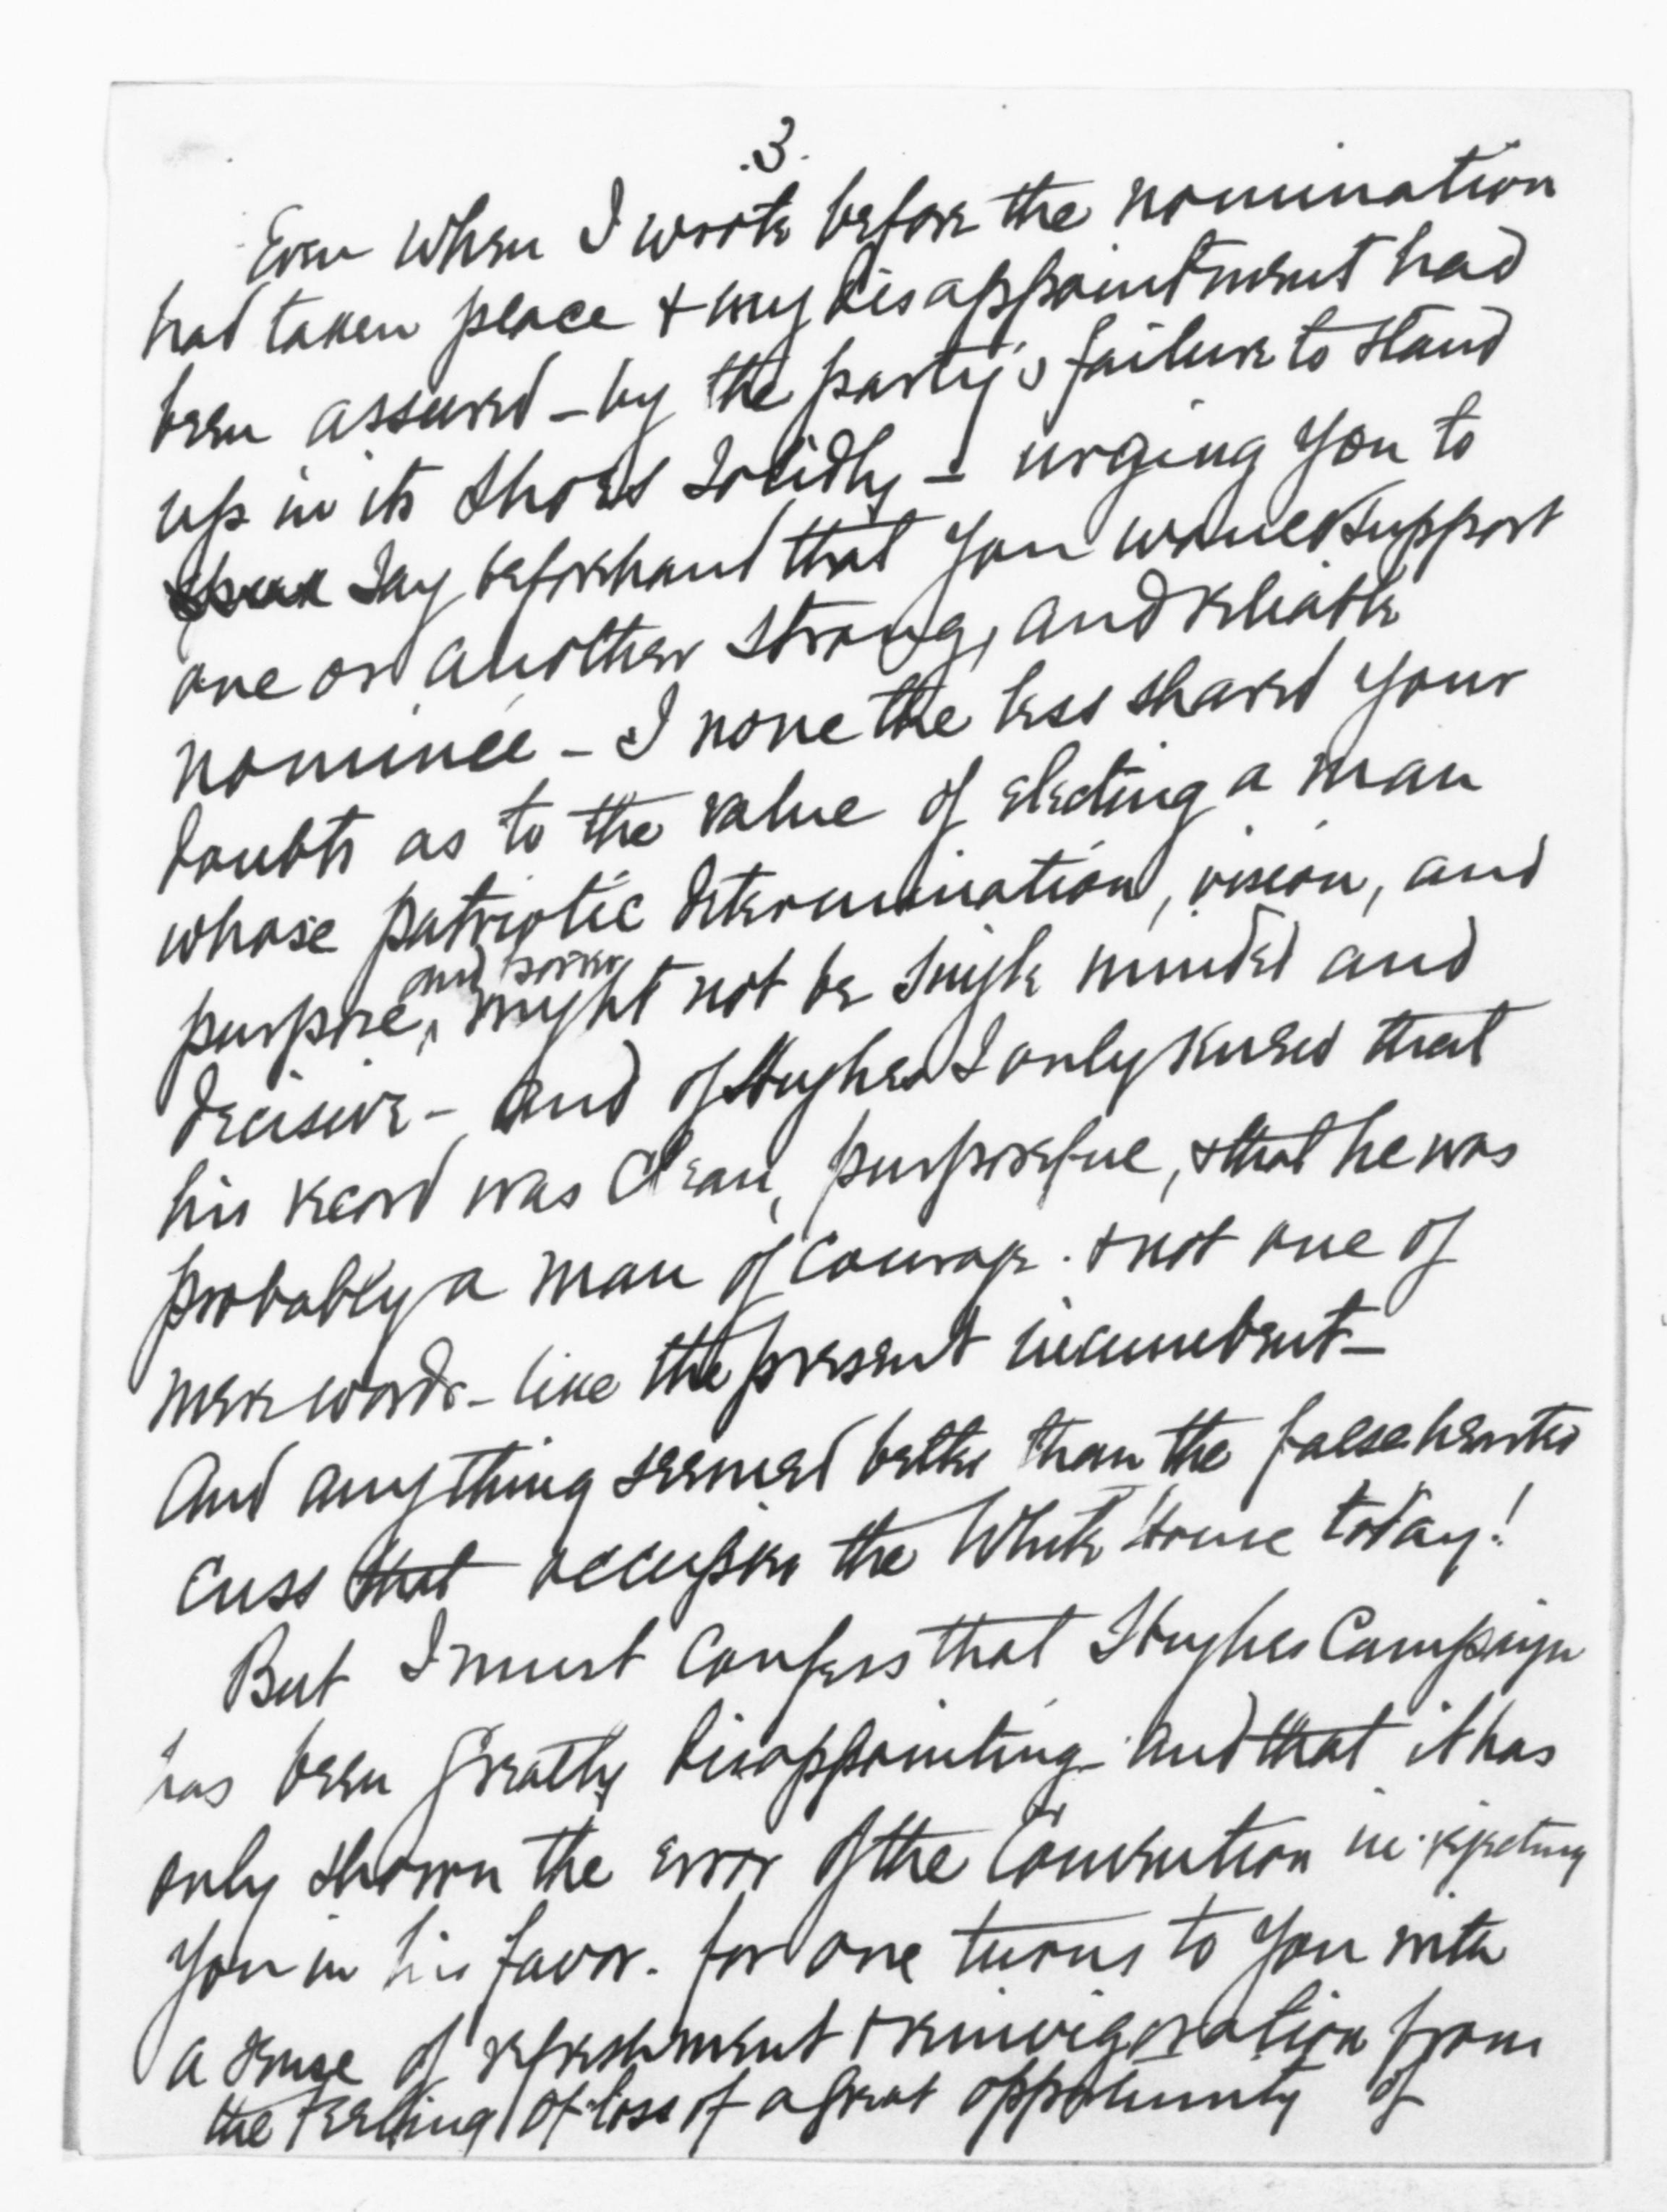 .3.
Even when I wrote before the nomination
had taken place & my disappointment had
been assured - by the party's failure to stand
up in its shoes solidly - urging you to
say beforehand that you would support
one or another strong, and reliable
nominee - I none the less shared your
doubts as to the value of electing a man
whose patriotic determination, vision, and
and power
purpose, might not be single minded and
decisive - and of Hughes I only knew that
his record was clean, purposeful, & that he was
probably a man of courage. & not one of
mere words - like the present incumbent -
And anything seemed better than the false hearted
cuss that occupies the White House today!
But I must confess that Hughes Campaign
has been greatly disappointing - and that it has
only shown the error of the Convention in rejecting
you in his favor. for one turns to you with
a sense of refreshment & reinvigoration from
the feeling of loss of a great opportunity of